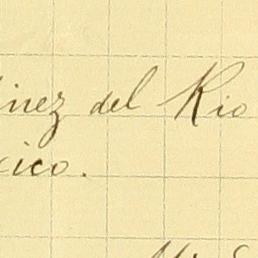 inez del Rio
xico.